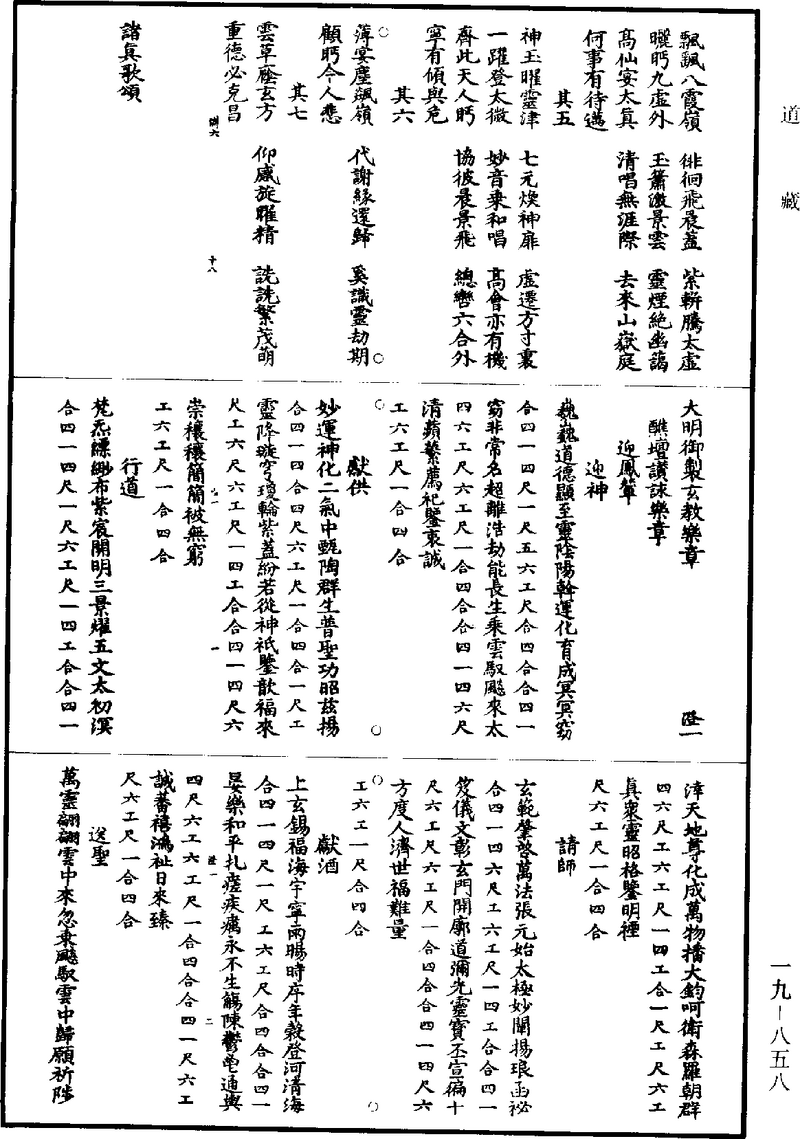 道藏
飄飄八霞嶺 徘徊飛晨蓋 紫軿騰太虛
曬眄九虛外 玉簫激景雲 靈煙絕幽藹
高仙宴太真 清唱無涯際 去來山嶽庭
何事有待邁
其五
神玉曜靈津 七元煥神扉 虛遷方寸裏
一躍登太微 妙音乗和唱 高會亦有機
齊此天人眄 協彼晨景飛 總轡六合外
寧有傾與危
其六
薄宴塵飆嶺 代謝緣還歸 奚識靈劫期
顧眄今人悲
其七
雲草廕玄方 仰感旋曜精 詵詵繁茂萌
十八
重德必克昌
諸真歌頌
大明御製玄教樂章 一
醮壇讚詠樂章
迎鳳輦
迎神
巍巍道德顯至靈陰陽斡運化育成冥冥窈
合四一四尺一尺五六工尺合四合合四一
窈非常名超離浩劫能長生乘雲馭飈來太
四六工六工尺一合四合合四一四六尺
清蘋蘩薦祀鑒衷誠
工六工尺一合四合
獻供
妙運神化二氣中甄陶群生普聖功昭玆揚
合四一四合四尺六工尺一合四合一尺工
靈降璇穹瓊輪紫蓋紛若從神祇鑒歆福來
尺工六尺六工尺一四工合合四一四尺六
崇穰穰簡簡被無窮
工六工尺一合四合
行道
梵炁縹緲布紫宸開明三景燿五文太初溟
合四一四尺一尺六工尺一四工合合四一
涬天地尊化成萬物播大鈞呵衛森羅朝群
四六尺工六工尺一四工合一尺工尺六工
真衆靈昭格鑒明禋
尺六工尺一合四合
請師
玄範肇啓萬法張元始太極妙闡揚琅函祕
合四一四六尺工六工尺一四工合合四一
笈儀文彰玄門開廓道彌光靈寶丕宣徧十
尺六工尺六工尺一合四合合四一四尺六
方度人濟世福難量
工六工一尺合四合
獻酒
上玄錫福海宇寧雨暘時序年榖登河清海
合四一四尺一尺工六工尺合四合合四一
晏樂和平扎瘥疾癘永不生觴陳鬱鬯通輿
四尺六工六工尺一合四合合四一尺六工
誠蕃禧鴻祉日來臻
尺六工尺一合四合
送聖
萬靈翩翩雲中來忽乗飈馭雲中歸願祈陟
一九-八五八